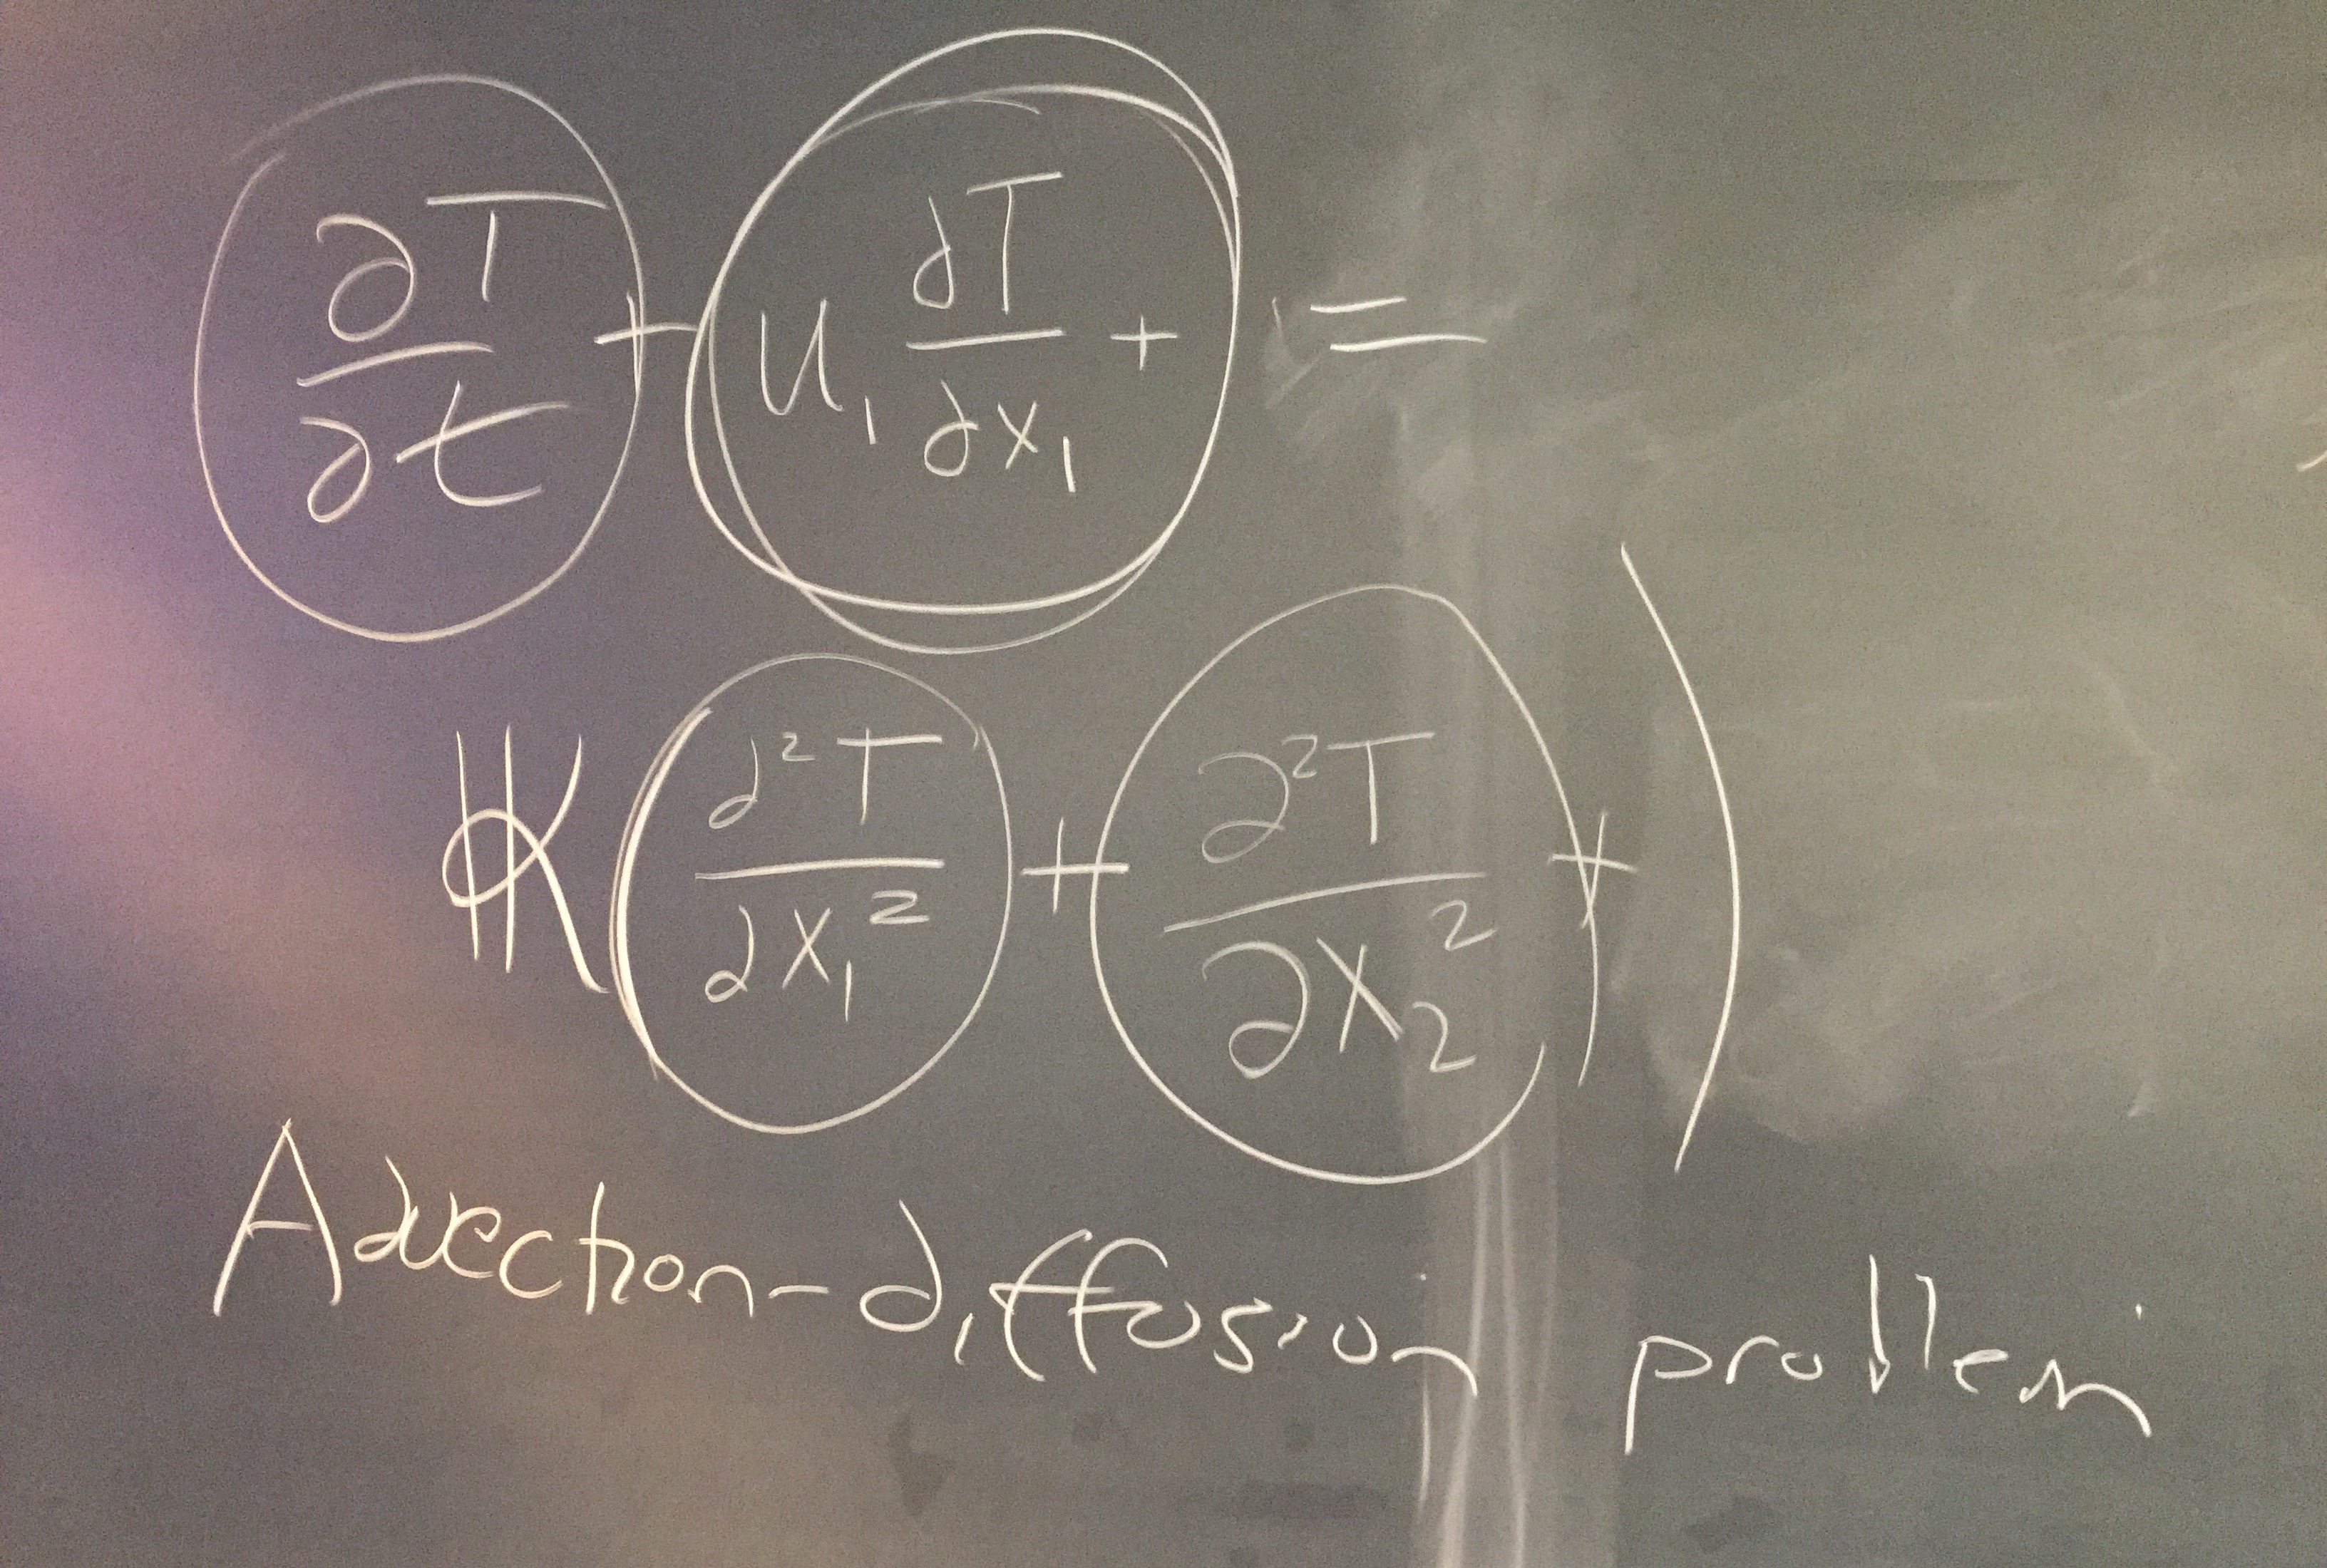 ∂T/∂t + u₁ ∂T/∂x₁ + =
K(∂²T/∂x₁² + ∂²T/∂x₂² + )
Advection-diffusion problem